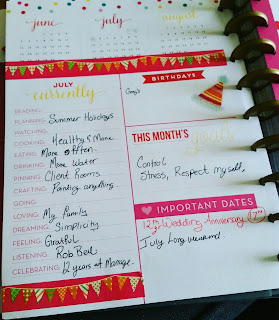 june
july
august
JULY
currently
READING:
PLANNING: Summer Holidays
WATCHING:
COOKING: Healthy & More
EATING: More often
DRINKING: More Water
PINNING: Client Rooms
CRAFTING: Painting anything
GOING:
LOVING: My Family
DREAMING: Simplicity
FEELING: Grateful
LISTENING: Rob Bell
CELEBRATING: 12 years of Marriage
BIRTHDAYS
THIS MONTH'S goals
Control
Stress, Respect myself,
IMPORTANT DATES
12th Wedding Anniversary
July Long weekend